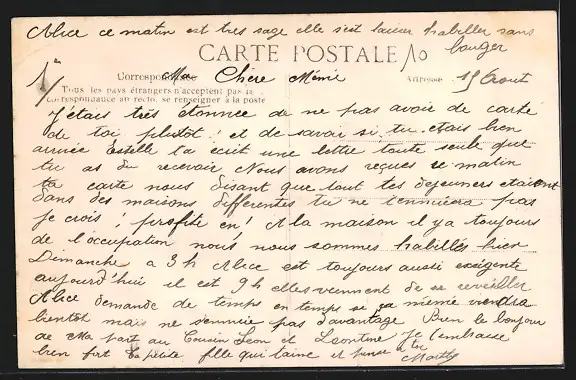 Alice ce matin est tres sage elle s'est laisser habiller sans
bouger
CARTE POSTALE 10
Correspondance Adresse
Ma Chère Mémé 15 Aout
Tous les pays étrangers n'acceptent pas la
correspondance au recto, se renseigner à la poste
J'étais très étonnée de ne pas avoir de carte
de toi plutôt ! et de savoir si tu étais bien
arrivée Estelle t'a écrit une lettre toute seule que
tu as du recevoir Nous avons reçues ce matin
ta carte nous disant que tout tes dejeuners etaient
dans des maisons differentes tu ne t'ennuiera pas
je crois ! profite en ! A la maison il y a toujours
de l'occupation nous nous sommes habillés hier
Dimanche a 3h Alice est toujours aussi exigente
aujourd'hui il est 9h elles viennent de se reveiller
Alice demande de temps en temps si sa mémé viendra
bientot mais ne s'ennuie pas d'avantage Bien le bonjour
de Ma part au Cousin Leon et Leontine je t'embrasse
bien fort ta petite fille qui t'aime et pense a toi